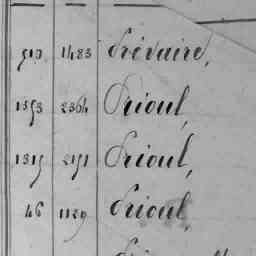 510 1483 Prévaire,
1353 2364 Prioul,
1315 2151 Prioul,
46 1129 Prioul,